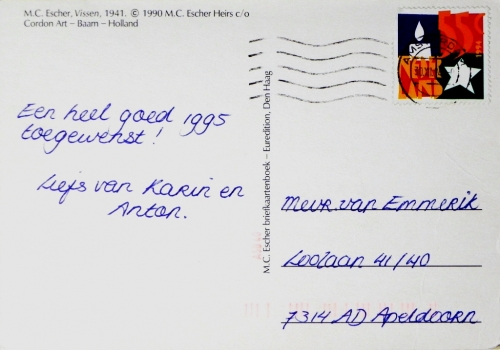 M.C. Escher, Vissen, 1941. © 1990 M.C. Escher Heirs c/o
Cordon Art – Baarn – Holland
Een heel goed 1995
toegewenst!
Liefs van Karin en
Anton.
M.C. Escher briefkaartenboek – Euredition, Den Haag
Mevr. van Emmerik
Loolaan 41/40
7314 AD Apeldoorn